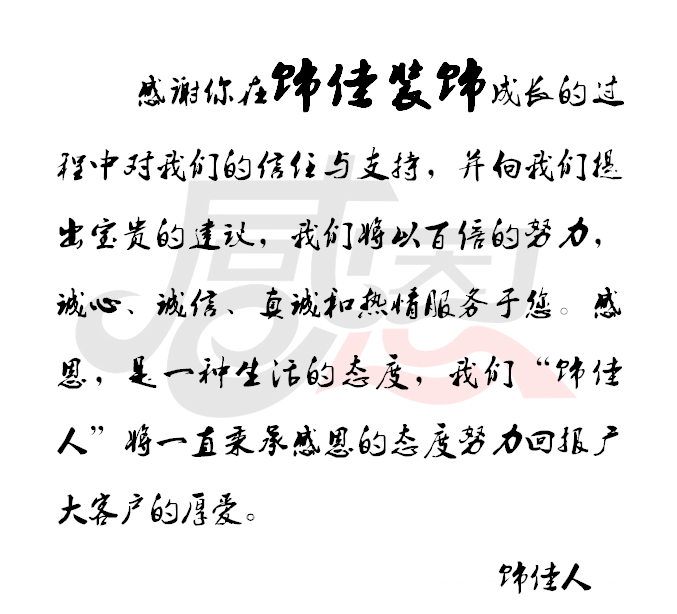 感谢你在饰佳装饰成长的过
程中对我们的信任与支持，并向我们提
出宝贵的建议，我们将以百倍的努力，
诚心、诚信、真诚和热情服务于您。感
恩，是一种生活的态度，我们“饰佳
人”将一直秉承感恩的态度努力回报广
大客户的厚爱。
饰佳人
感恩